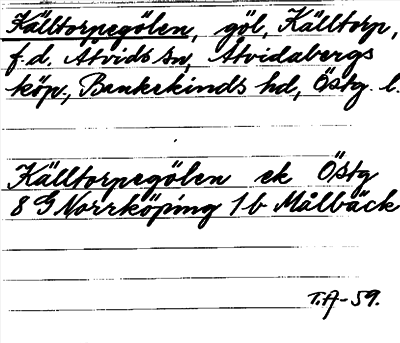 Källtorpegölen, göl, Källtorp,
f.d. Åtvids sn, Åtvidabergs
köp., Bankekinds hd, Östg. l.
Källtorpegölen ek Östg
8 G Norrköping 1b Målbäck
T.A-59.